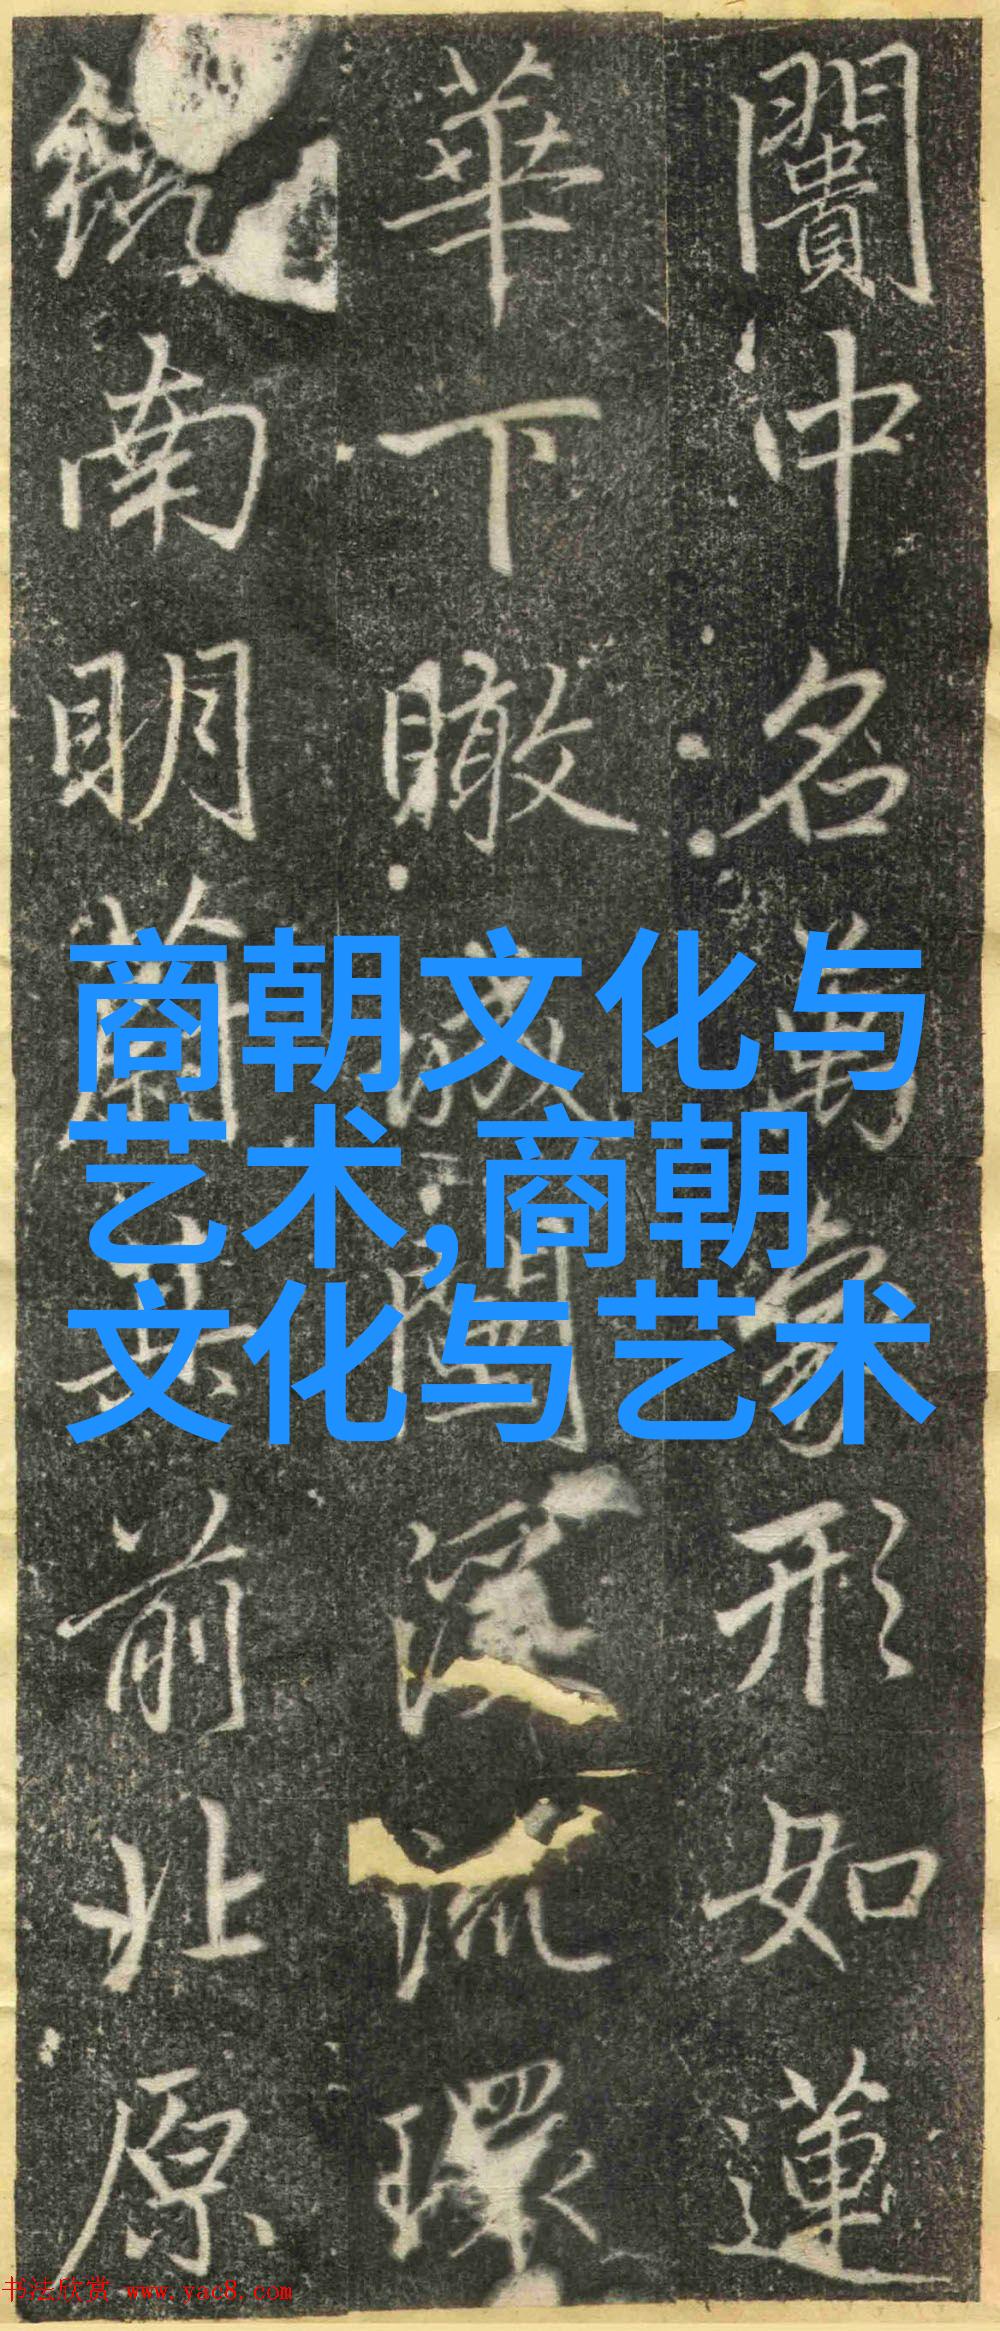 闠中名万象形如莲
華下瞰城闉深流環
南明蘭其前北原
商朝文化与
艺术,商朝
文化与艺术
书法欣赏 www.yac8.com